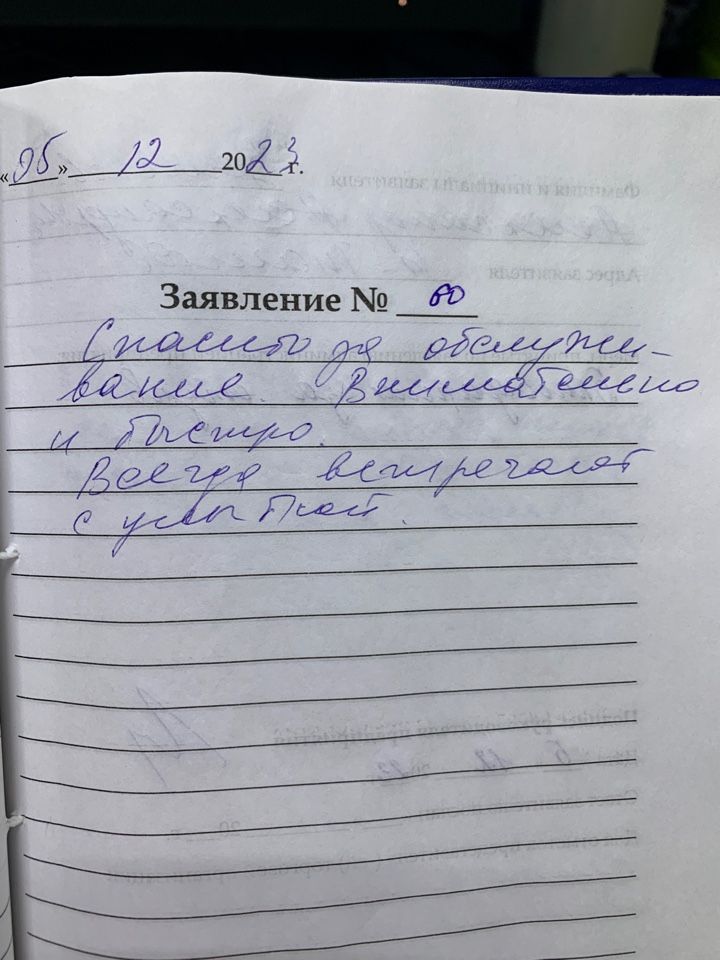 «06» 12 2023 г.
Заявление № 60
Спасибо за обслужи-
вание. Внимательно
и быстро.
Всегда встречают
с улыбкой.